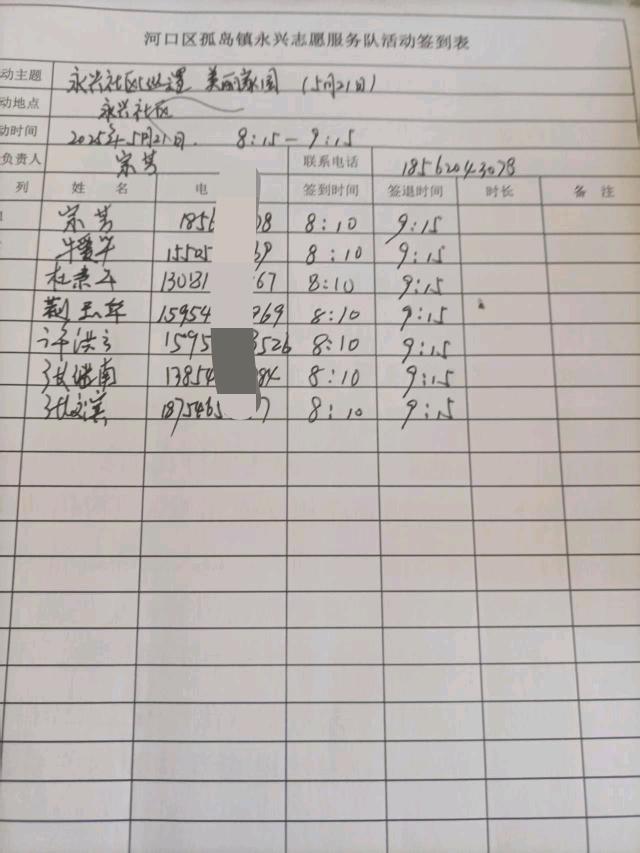 河口区孤岛镇永兴志愿服务队活动签到表
动主题 永兴社区 美丽家园 (5月21日)
动地点 永兴社区
动时间 2025年5月21日. 8:15-9:15
负责人 宗芳 联系电话 18562043078
列 姓名 电 签到时间 签退时间 时长 备注
宗芳 1856 08 8:10 9:15
牛爱华 15505 39 8:10 9:15
杜素 13081 67 8:10 9:15
荆玉华 15954 069 8:10 9:15
许洪 1595 3526 8:10 9:15
张继南 13854 84 8:10 9:15
张文滨 1875465 7 8:10 9:15